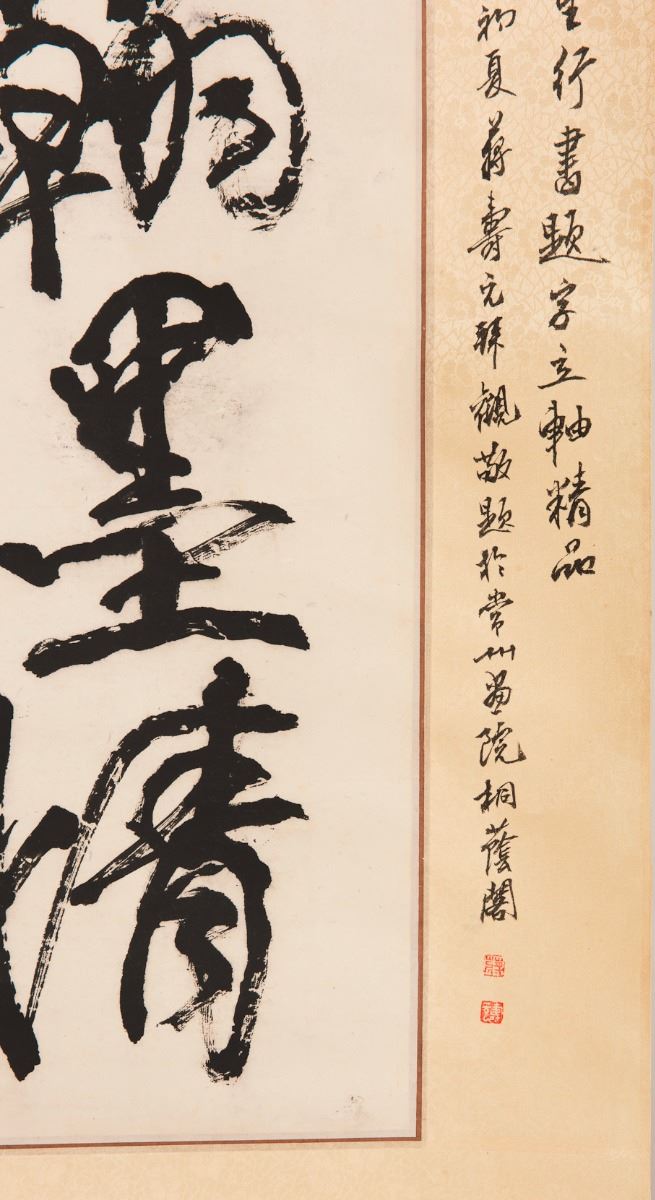 行書題字立軸精品
初夏蔣壽元拜觀敬題於常州畫院桐蔭閣
翰墨情